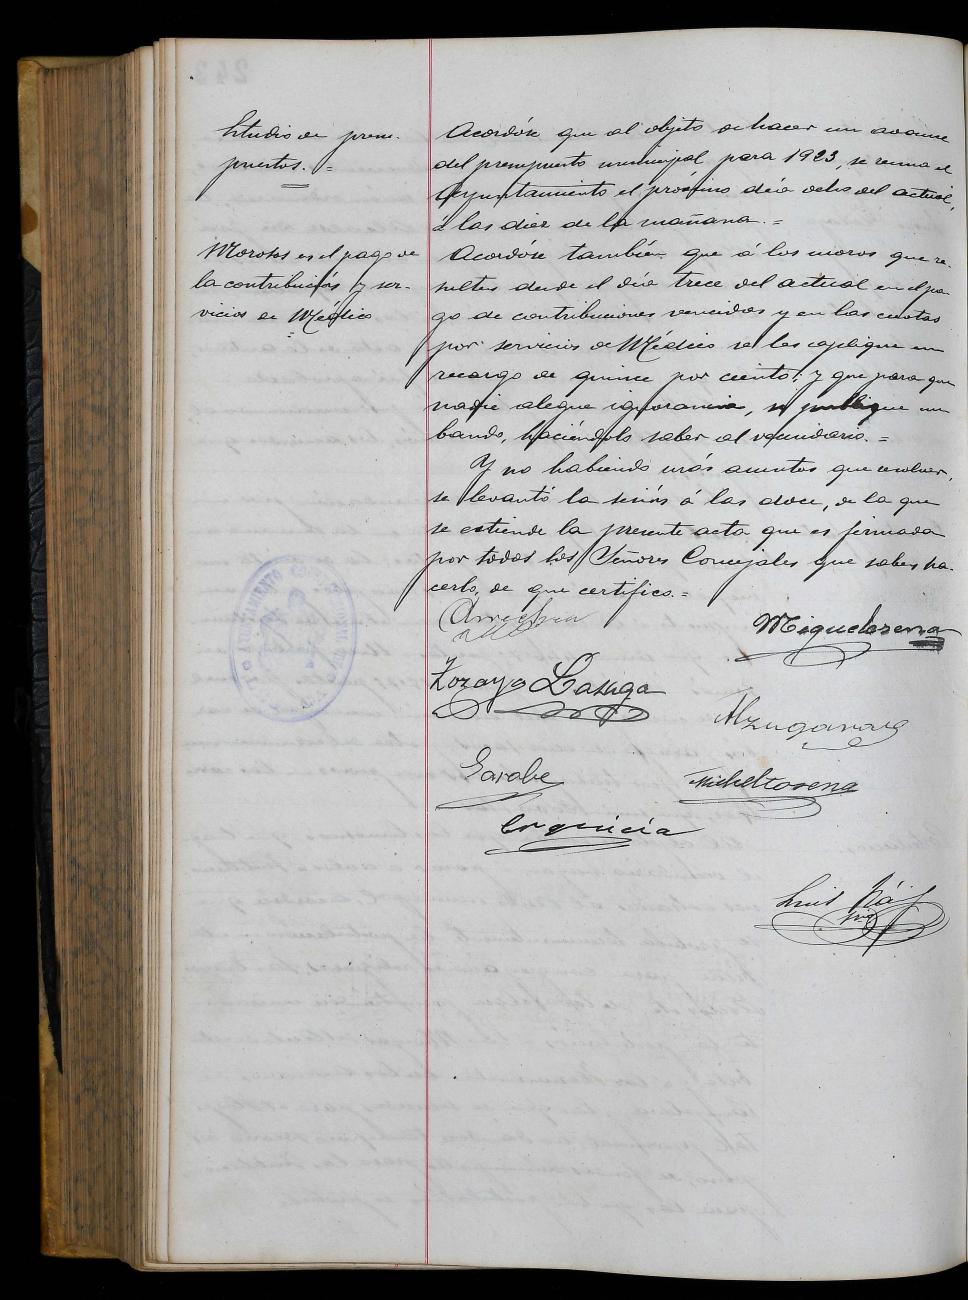 Studio de presu-
puestos. =
Acordóse que al objeto de hacer un avance
del presupuesto municipal para 1923, se reuna el
Ayuntamiento el próximo día ocho del actual,
á las diez de la mañana. =
Morosos en el pago de
la contribución y ser-
vicios de Médico
Acordóse también que á los moros que re-
sulten desde el día trece del actual en el pa-
go de contribuciones vencidas y en las cuotas
por servicios de Médico se les aplique un
recargo de quince por ciento; y que para que
nadie alegue ignorancia, se publique un
bando, haciéndolo saber al vecindario. =
Y no habiendo más asuntos que resolver,
se levantó la sesión á las doce, de la que
se extiende la presente acta que es firmada
por todos los Señores Concejales que saben ha-
cerlo, de que certifico. =
Arrechea
Miguelorena
Zozaya Lasaga
Alzugaray
Garabe
Micheltorena
Luis
AYUNTAMIENTO